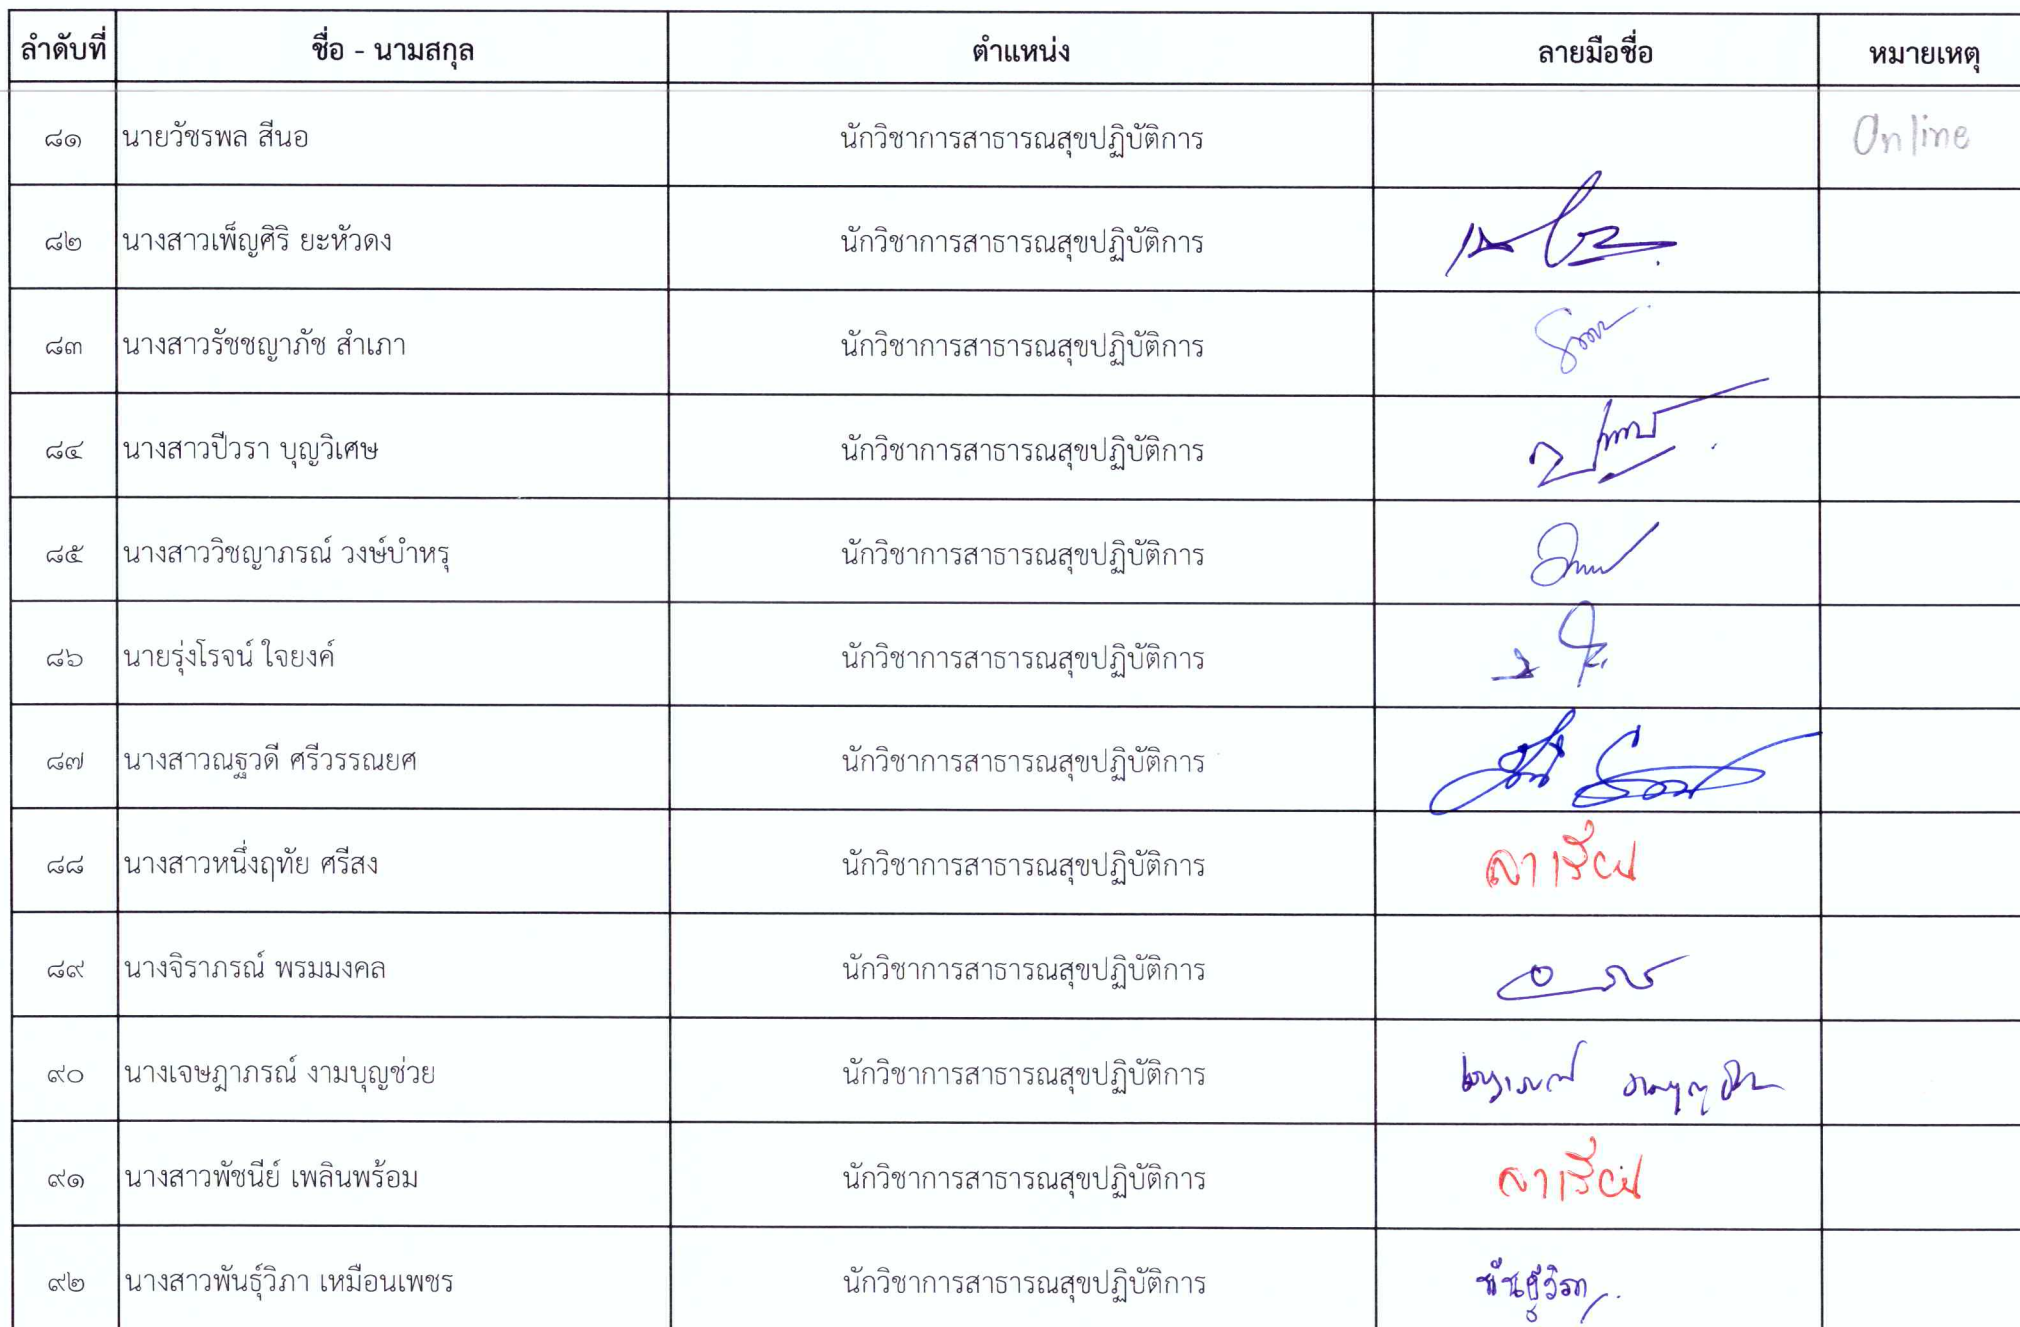 ลำดับที่ ชื่อ - นามสกุล ตำแหน่ง ลายมือชื่อ หมายเหตุ
๘๑ นายวัชรพล สีนอ นักวิชาการสาธารณสุขปฏิบัติการ Online
๘๒ นางสาวเพ็ญศิริ ยะหัวดง นักวิชาการสาธารณสุขปฏิบัติการ
๘๓ นางสาวรัชชญาภัช สำเภา นักวิชาการสาธารณสุขปฏิบัติการ
๘๔ นางสาวปีวรา บุญวิเศษ นักวิชาการสาธารณสุขปฏิบัติการ
๘๕ นางสาววิชญาภรณ์ วงษ์บำหรุ นักวิชาการสาธารณสุขปฏิบัติการ
๘๖ นายรุ่งโรจน์ ใจยงค์ นักวิชาการสาธารณสุขปฏิบัติการ
๘๗ นางสาวณฐวดี ศรีวรรณยศ นักวิชาการสาธารณสุขปฏิบัติการ
๘๘ นางสาวหนึ่งฤทัย ศรีสง นักวิชาการสาธารณสุขปฏิบัติการ ลาเรียน
๘๙ นางจิราภรณ์ พรมมงคล นักวิชาการสาธารณสุขปฏิบัติการ
๙๐ นางเจษฎาภรณ์ งามบุญช่วย นักวิชาการสาธารณสุขปฏิบัติการ
๙๑ นางสาวพัชนีย์ เพลินพร้อม นักวิชาการสาธารณสุขปฏิบัติการ ลาเรียน
๙๒ นางสาวพันธุ์วิภา เหมือนเพชร นักวิชาการสาธารณสุขปฏิบัติการ พันธุ์วิภา